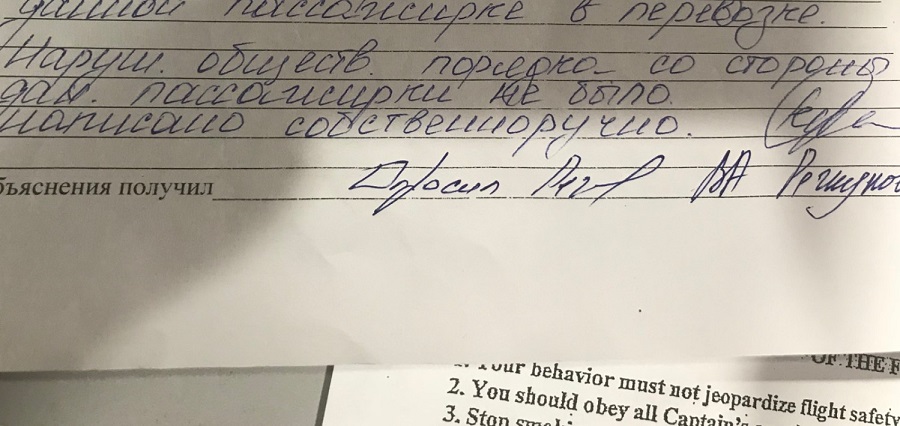 данной пассажирке в перевозке.
Наруш. обществ. порядка со стороны
дан. пассажирки не было.
написано собственноручно.
бъяснения получил
OF THE F
1. Your behavior must not jeopardize flight safety
2. You should obey all Captain's
3. Stop smoki